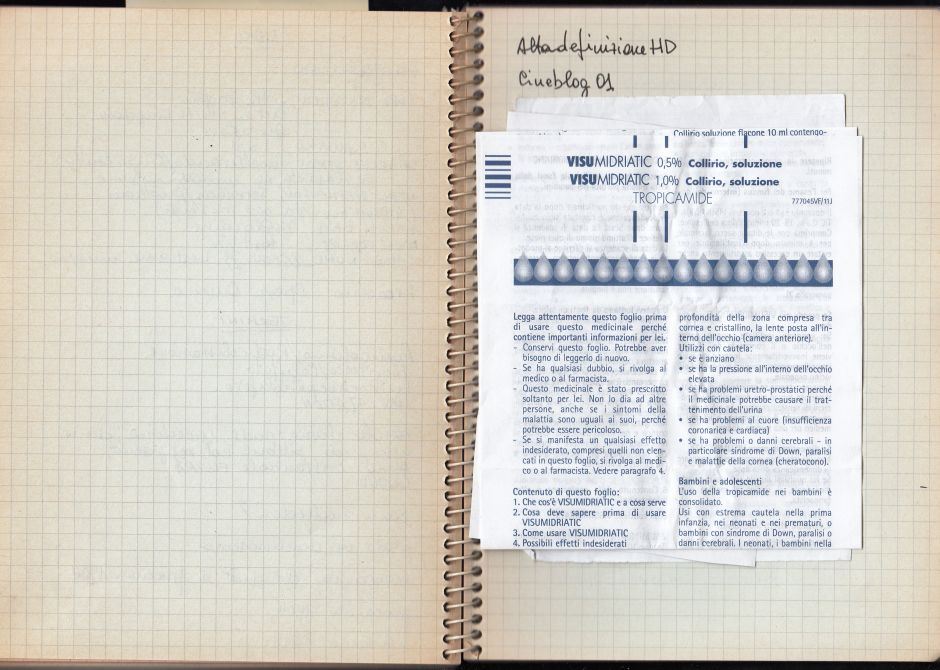 AltadefinizioneHD
Cineblog 01
Collirio soluzione flacone 10 ml contengo-
VISUMIDRIATIC 0,5% Collirio, soluzione
VISUMIDRIATIC 1,0% Collirio, soluzione
TROPICAMIDE
777045VF/11J
Legga attentamente questo foglio prima
di usare questo medicinale perché
contiene importanti informazioni per lei.
- Conservi questo foglio. Potrebbe aver
bisogno di leggerlo di nuovo.
- Se ha qualsiasi dubbio, si rivolga al
medico o al farmacista.
- Questo medicinale è stato prescritto
soltanto per lei. Non lo dia ad altre
persone, anche se i sintomi della
malattia sono uguali ai suoi, perché
potrebbe essere pericoloso.
- Se si manifesta un qualsiasi effetto
indesiderato, compresi quelli non elen-
cati in questo foglio, si rivolga al medi-
co o al farmacista. Vedere paragrafo 4.
Contenuto di questo foglio:
1. Che cos'è VISUMIDRIATIC e a cosa serve
2. Cosa deve sapere prima di usare
VISUMIDRIATIC
3. Come usare VISUMIDRIATIC
4. Possibili effetti indesiderati
profondità della zona compresa tra
cornea e cristallino, la lente posta all'in-
terno dell'occhio (camera anteriore).
Utilizzi con cautela:
• se è anziano
• se ha la pressione all'interno dell'occhio
elevata
• se ha problemi uretro-prostatici perché
il medicinale potrebbe causare il trat-
tenimento dell'urina
• se ha problemi al cuore (insufficienza
coronarica e cardiaca)
• se ha problemi o danni cerebrali – in
particolare sindrome di Down, paralisi
e malattie della cornea (cheratocono).
Bambini e adolescenti
L'uso della tropicamide nei bambini è
consolidato.
Usi con estrema cautela nella prima
infanzia, nei neonati e nei prematuri, o
bambini con sindrome di Down, paralisi o
danni cerebrali. I neonati, i bambini nella